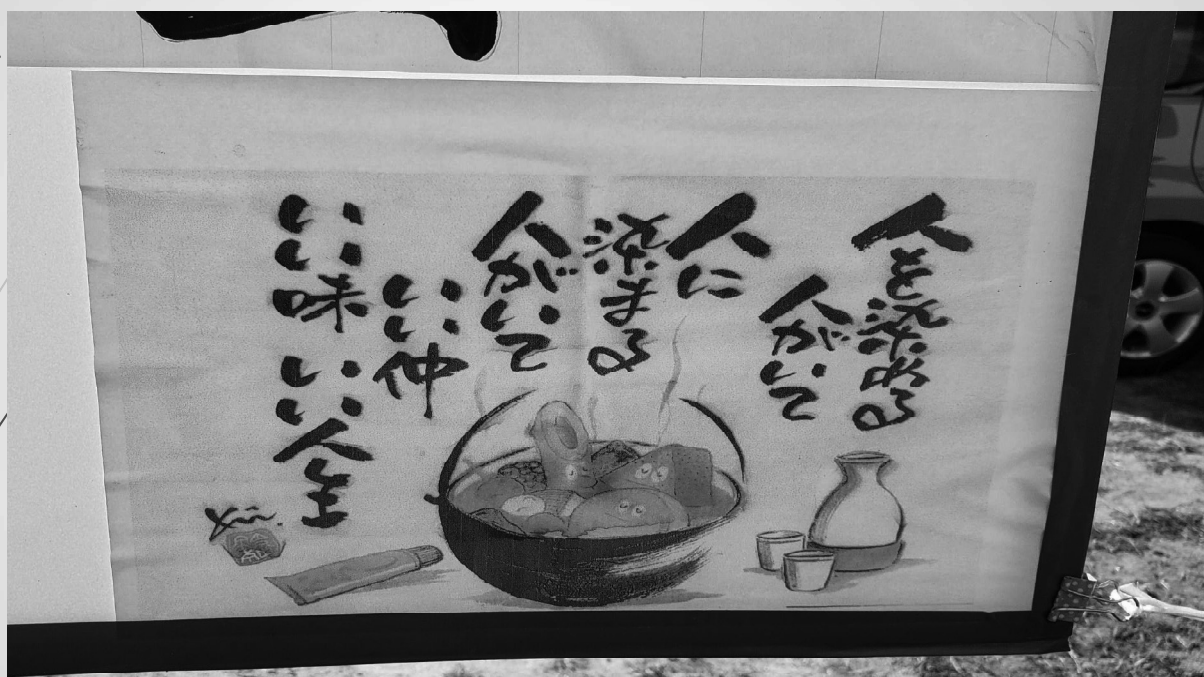 人を染める
人がいて
人に
染まる
人がいて
いい仲
いい味 いい人生